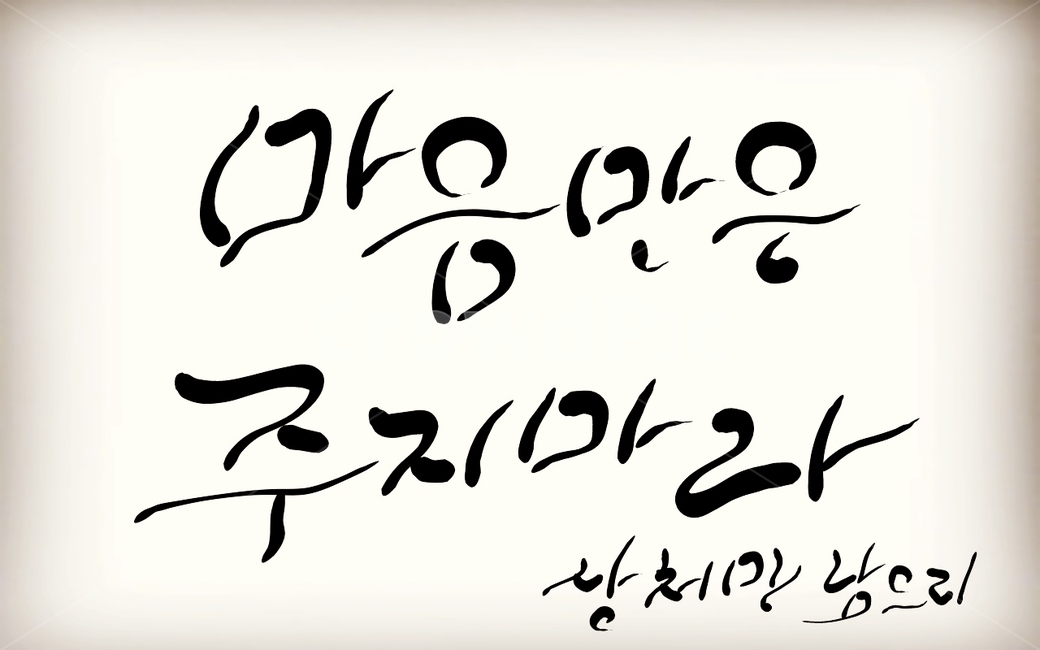 마음만은
주지마라
상처만 남으리